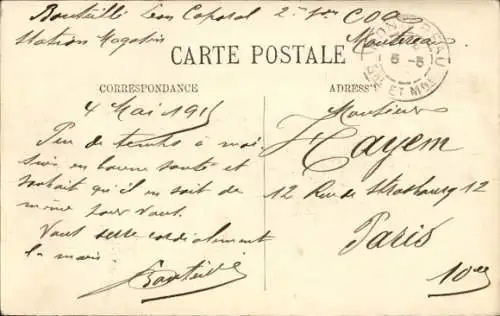 Bouteillé Leon Caporal 2e Son COA
Station Magasin Montereau
MONTEREAU
5-5
SNE ET MNE
CARTE POSTALE
CORRESPONDANCE
ADRESSE
4 Mai 1915
Peu de temps à moi
suis en bonne santé et
souhait qu'il en soit de
même pour vous.
Vous serre cordialement
la main.
Bouteillé
Monsieur
Hayem
12 Rue de Strasbourg 12
Paris
10e